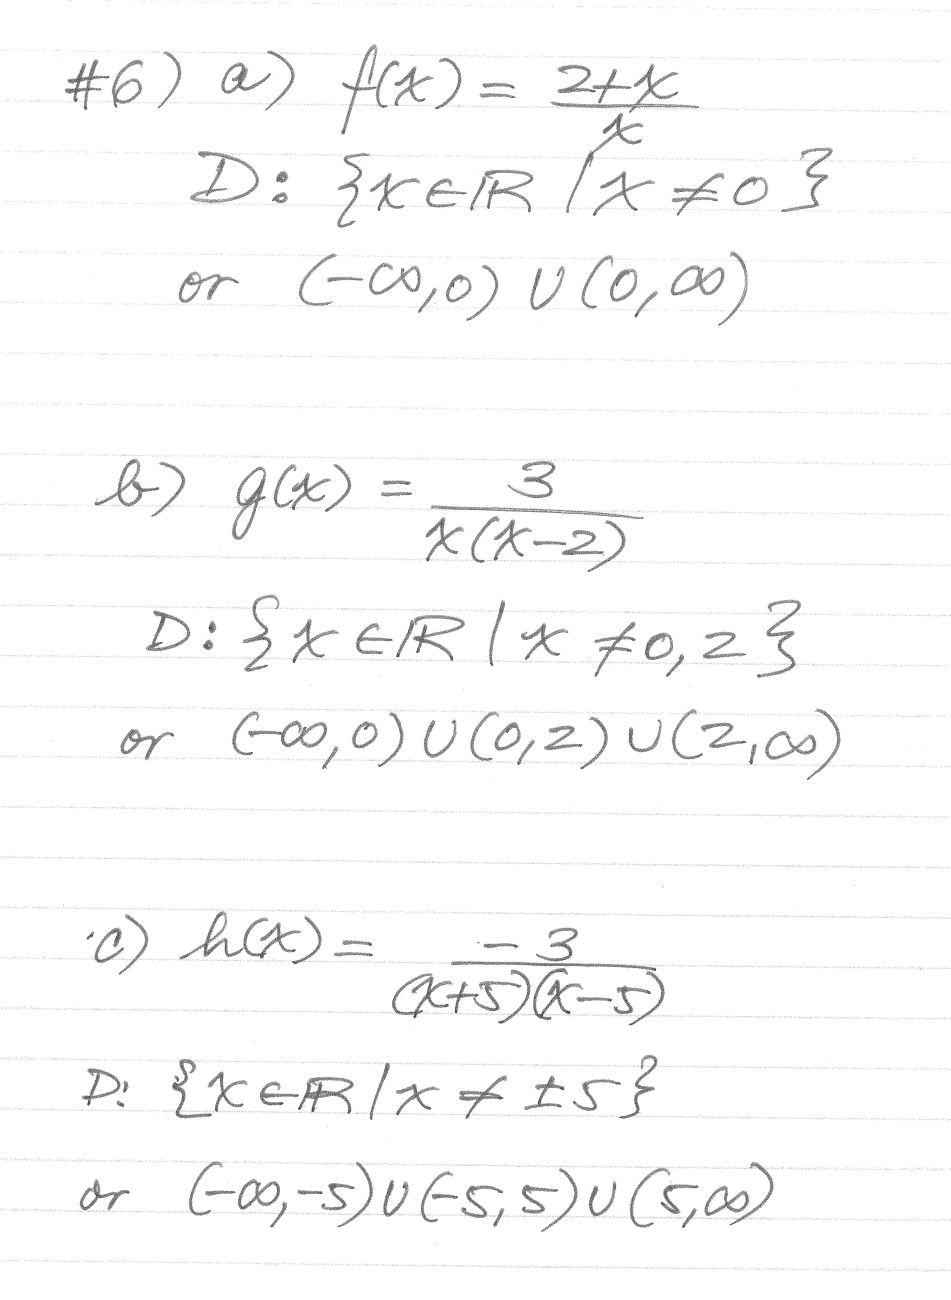 #6) a) f(x) = (2+x)/x
D: {x∈ℝ | x ≠ 0}
or (-∞,0) ∪ (0,∞)
b) g(x) = 3/(x(x-2))
D: {x ∈ ℝ | x ≠ 0, 2}
or (-∞,0) ∪ (0,2) ∪ (2,∞)
c) h(x) = -3/((x+5)(x-5))
D: {x∈ℝ | x ≠ ±5}
or (-∞,-5) ∪ (-5,5) ∪ (5,∞)